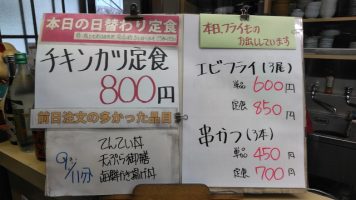 本日の日替わり定食
チキンカツ定食
800円
前日注文の多かった品目
9/11分
てんてい丼
天ぷら御膳
海鮮かき揚げ丼
本日、フライものも
お出ししています
エビフライ(3尾)
単品 600円
定食 850円
串かつ(3本)
単品 450円
定食 700円